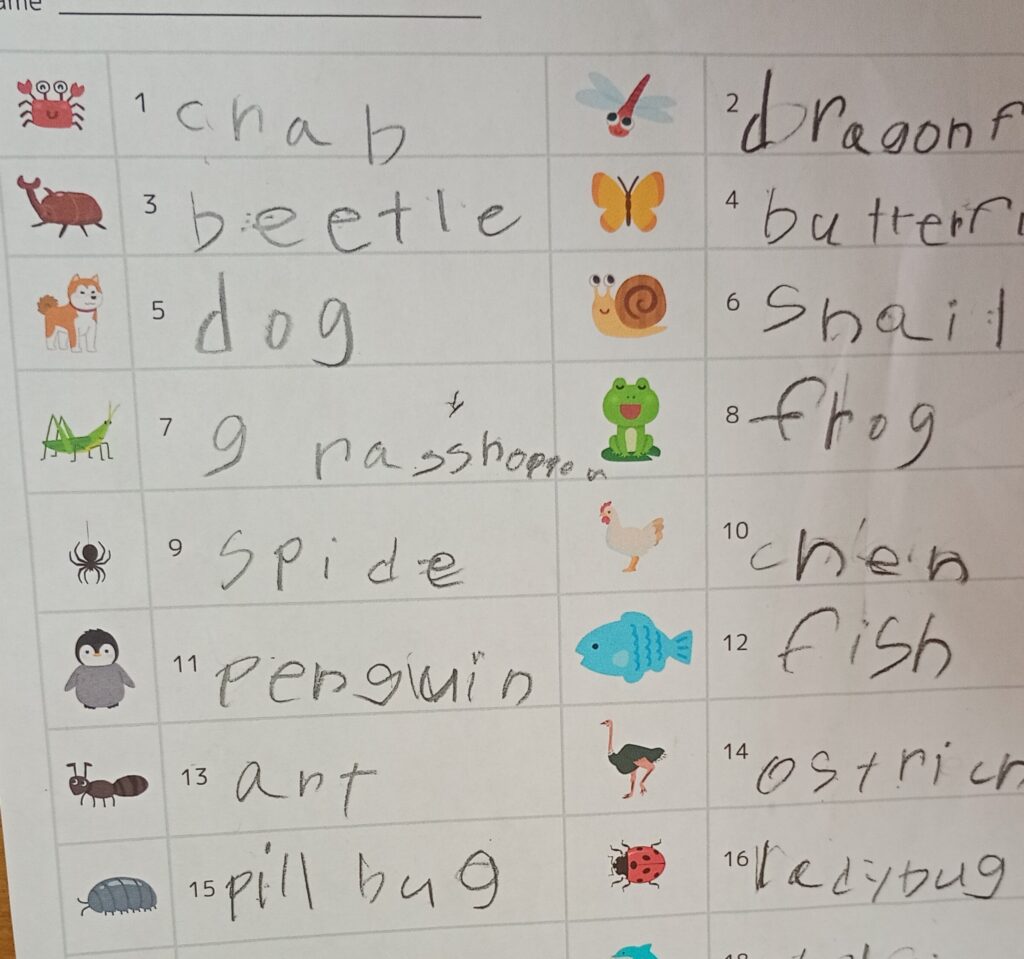 ame
1 crab
2 dragonf
3 beetle
4 butterfl
5 dog
6 snail
7 grasshopper
8 frog
9 spide
10 chen
11 penguin
12 fish
13 ant
14 ostrich
15 pill bug
16 ladybug
18